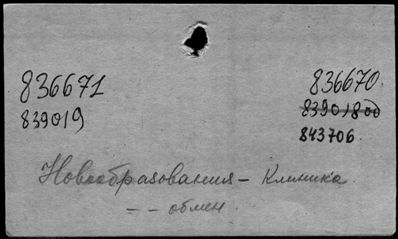 836671 836670
839019 839018 od
843706.
Новообразования – Клиника.
– – обмен.